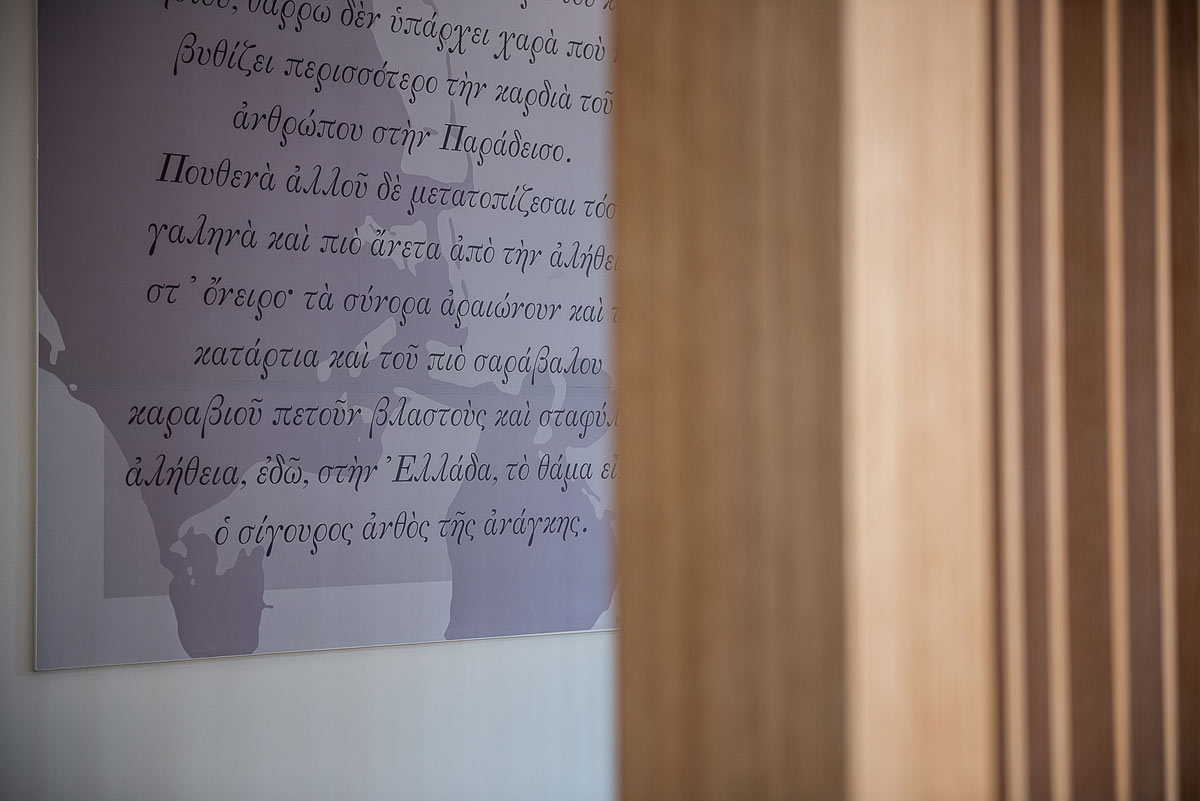 θαρρῶ δὲν ὑπάρχει χαρὰ ποὺ
βυθίζει περισσότερο τὴν καρδιὰ τοῦ
ἀνθρώπου στὴν Παράδεισο.
Πουθενὰ ἀλλοῦ δὲ μετατοπίζεσαι τόσ
γαληνὰ καὶ πιὸ ἄνετα ἀπὸ τὴν ἀλήθει
στ ’ ὄνειρο· τὰ σύνορα ἀραιώνουν καὶ τ
κατάρτια καὶ τοῦ πιὸ σαράβαλου
καραβιοῦ πετοῦν βλαστοὺς καὶ σταφύλ
ἀλήθεια, ἐδῶ, στὴν Ἑλλάδα, τὸ θάμα εἶ
ὁ σίγουρος ἀνθὸς τῆς ἀνάγκης.